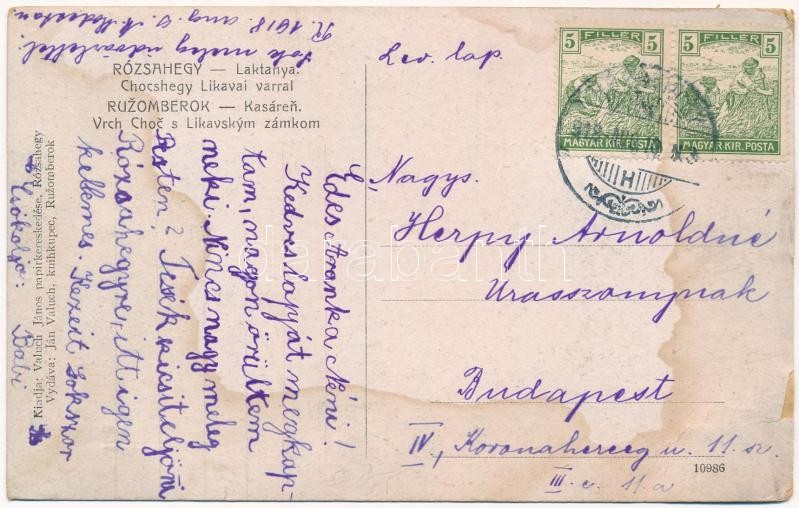 Sok meleg üdvözlettel
R. 1918. aug. 9.
RÓZSAHEGY — Laktanya.
Chocshegy Likavai varral
RUŽOMBEROK — Kasáreň.
Vrch Choč s Likavským zámkom
Lev. lap.
5 FILLÉR 5
MAGYAR KIR. POSTA
5 FILLÉR 5
MAGYAR KIR. POSTA
H
Édes Aranka Néni!
Kedves lapját megkap-
tam, nagyon örültem
neki. Nincs nagy meleg
Pesten? Tessék kicsit eljönni
Rózsahegyre, itt igen
kellemes. Kezeit sokszor
csókolja: Babi
Kiadja: Valuch János papirkereskedése, Rózsahegy
Vydáva: Ján Valuch, knihkupec, Ružomberok
Nagys.
Herpy Arnoldné
Urasszonynak
Budapest
IV, Koronaherceg u. 11. sz.
III. e. 11.a
10986
darabanth